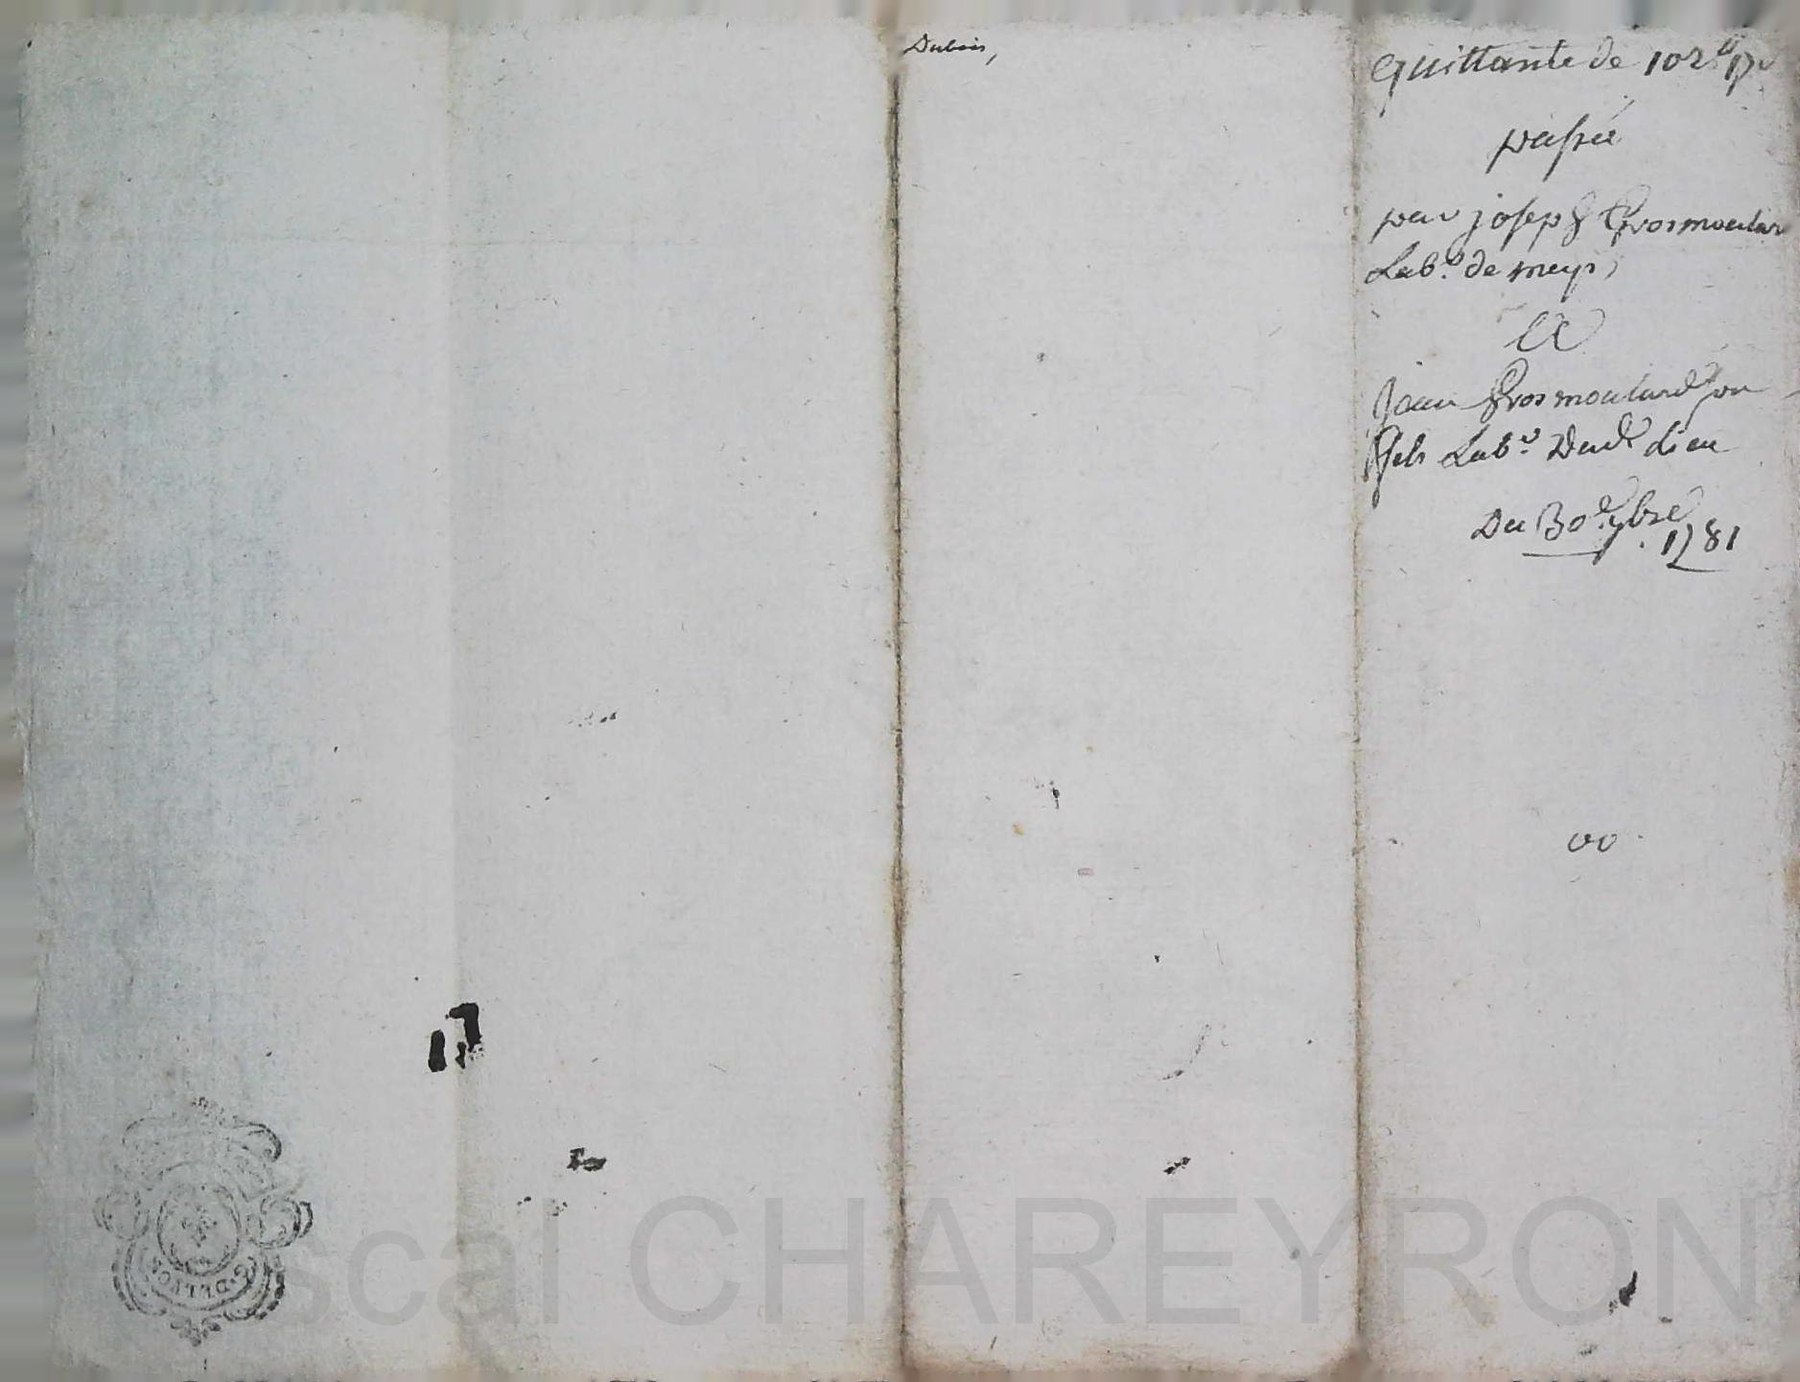 Dubois,
Quittante de 102.ᵗᵗ 17ˢ
passée
par joseph Grosmoutar
Lab.ʳ de meys,
Et
Jean Grosmoutard son
fils Lab.ʳ Dud.ᵗ lieu
Du 30.ᵉ 9bre
1781
00
G. DE LYON
scal CHAREYRON